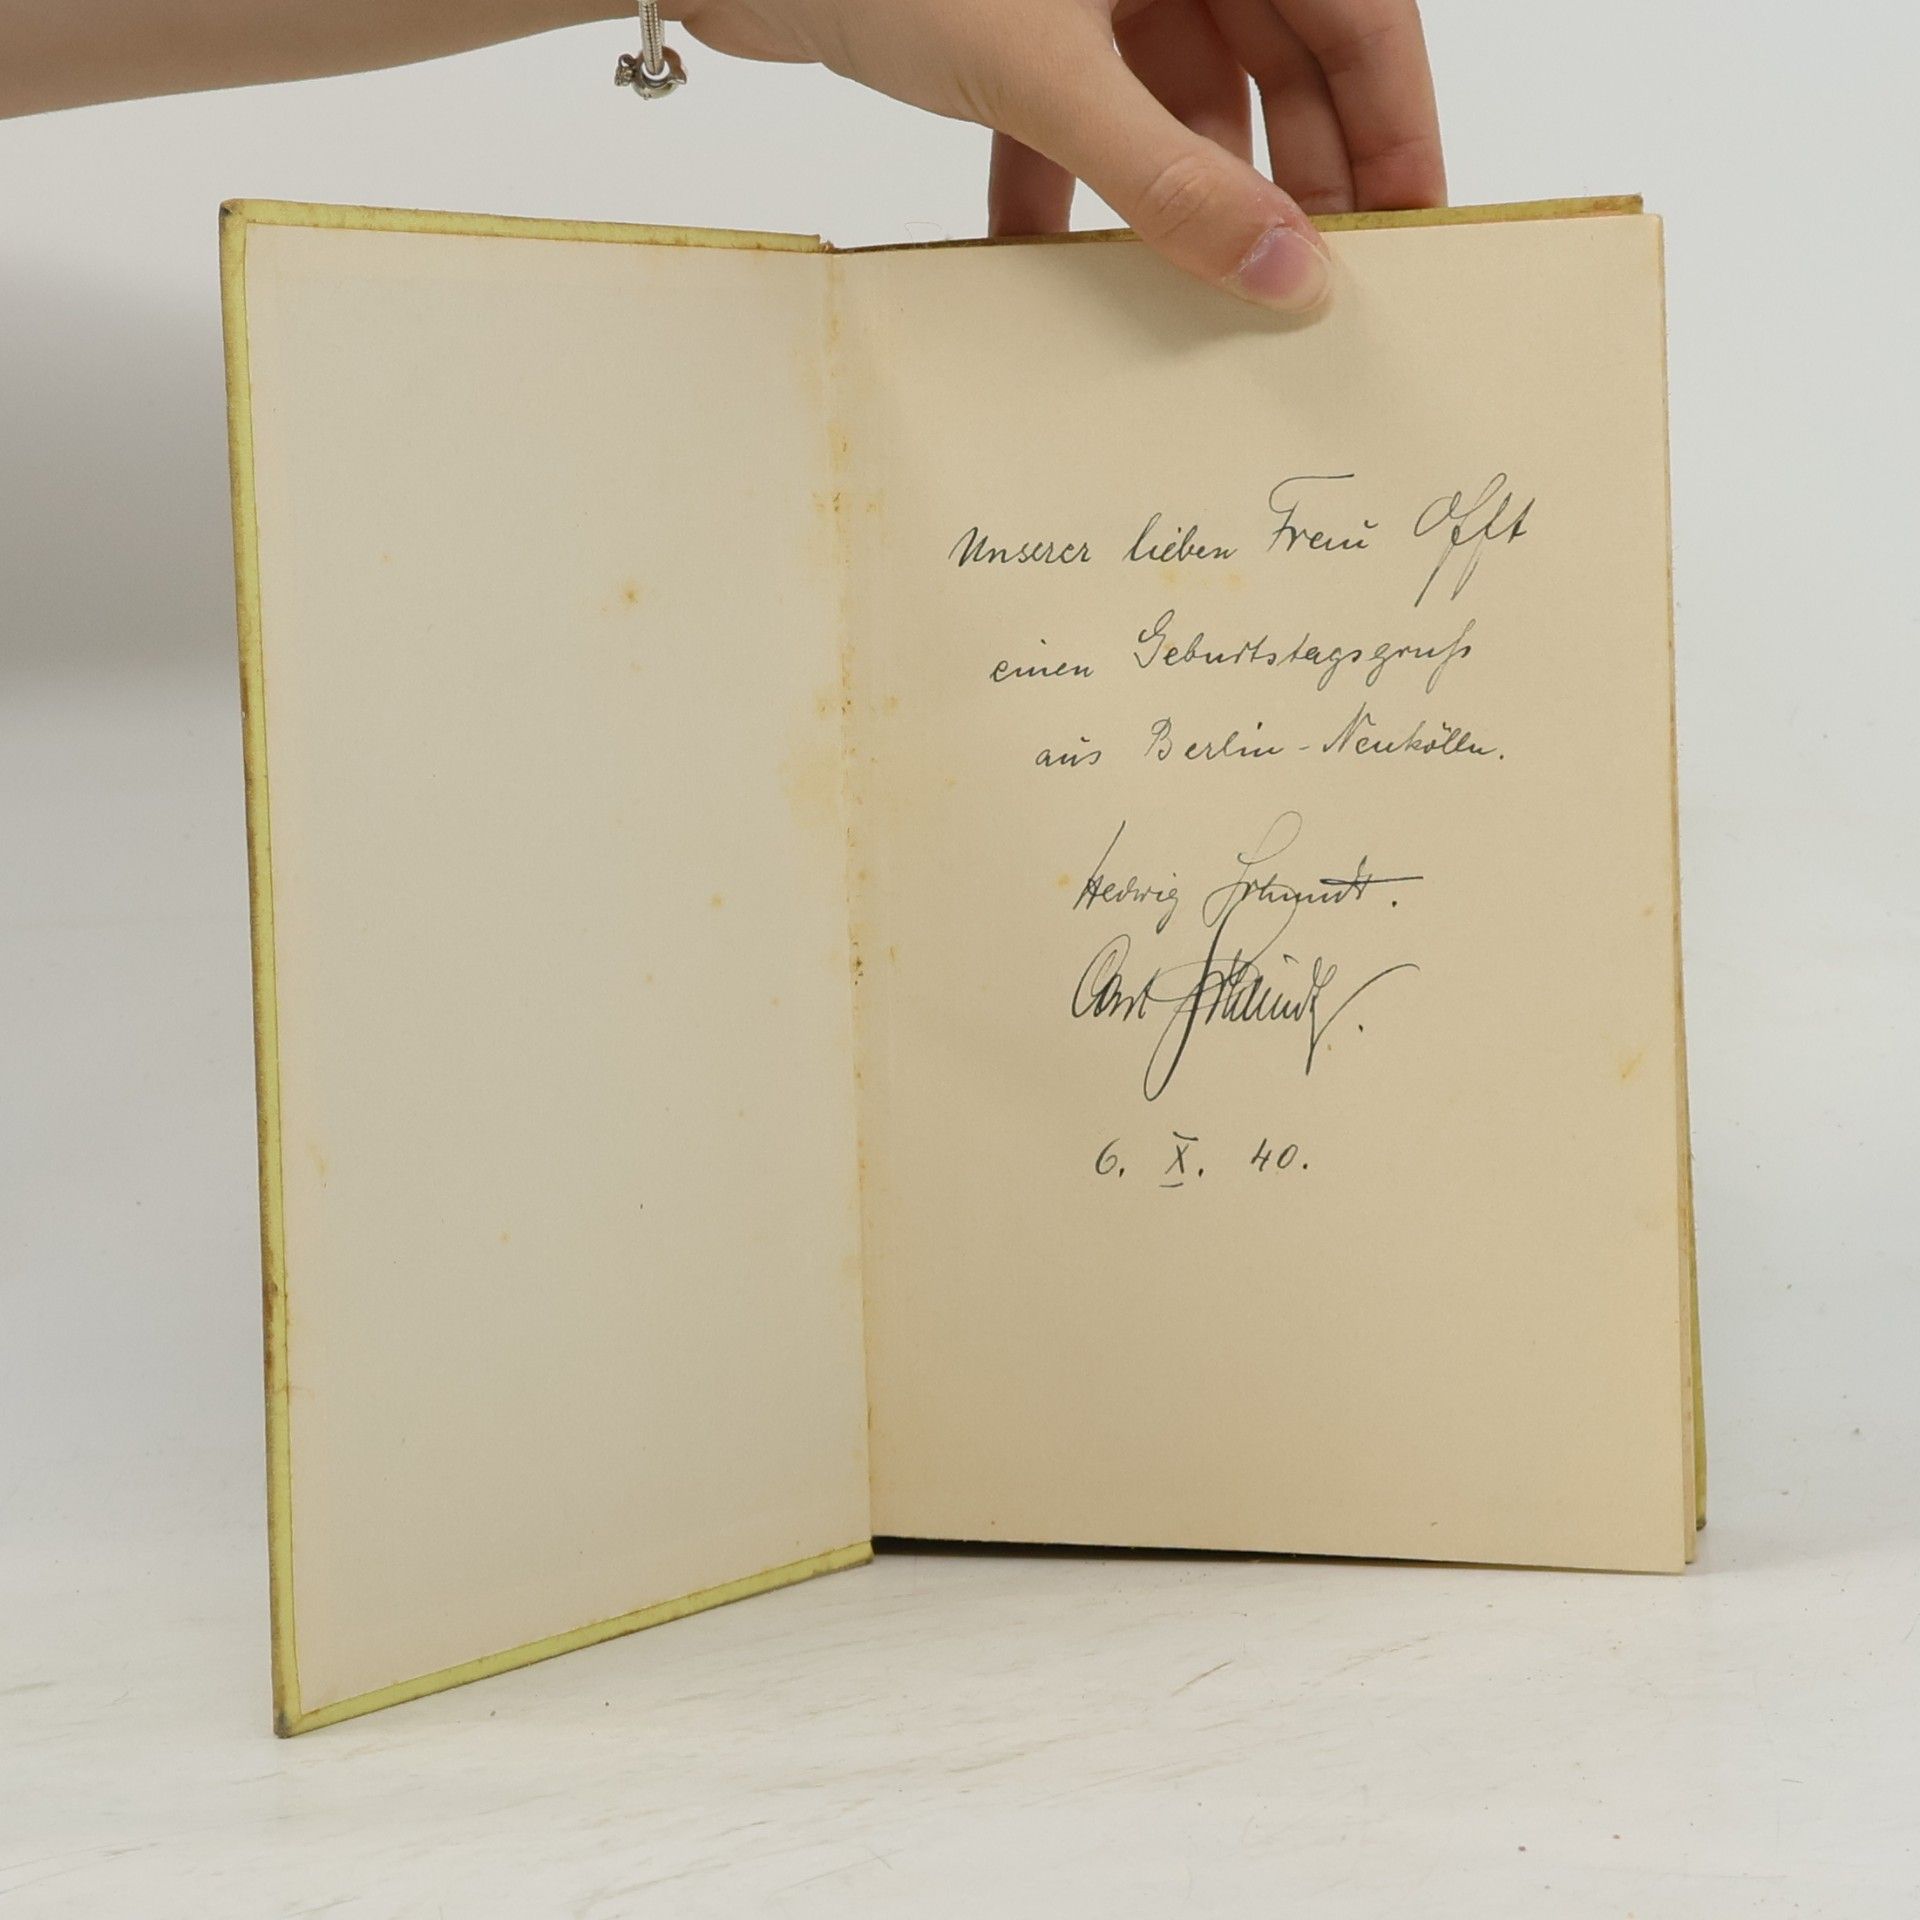 Unserer lieben Frau Offt
einen Geburtstagsgruß
aus Berlin-Neukölln.
Hedwig Schmidt.
Carl Schmidt.
6. X. 40.